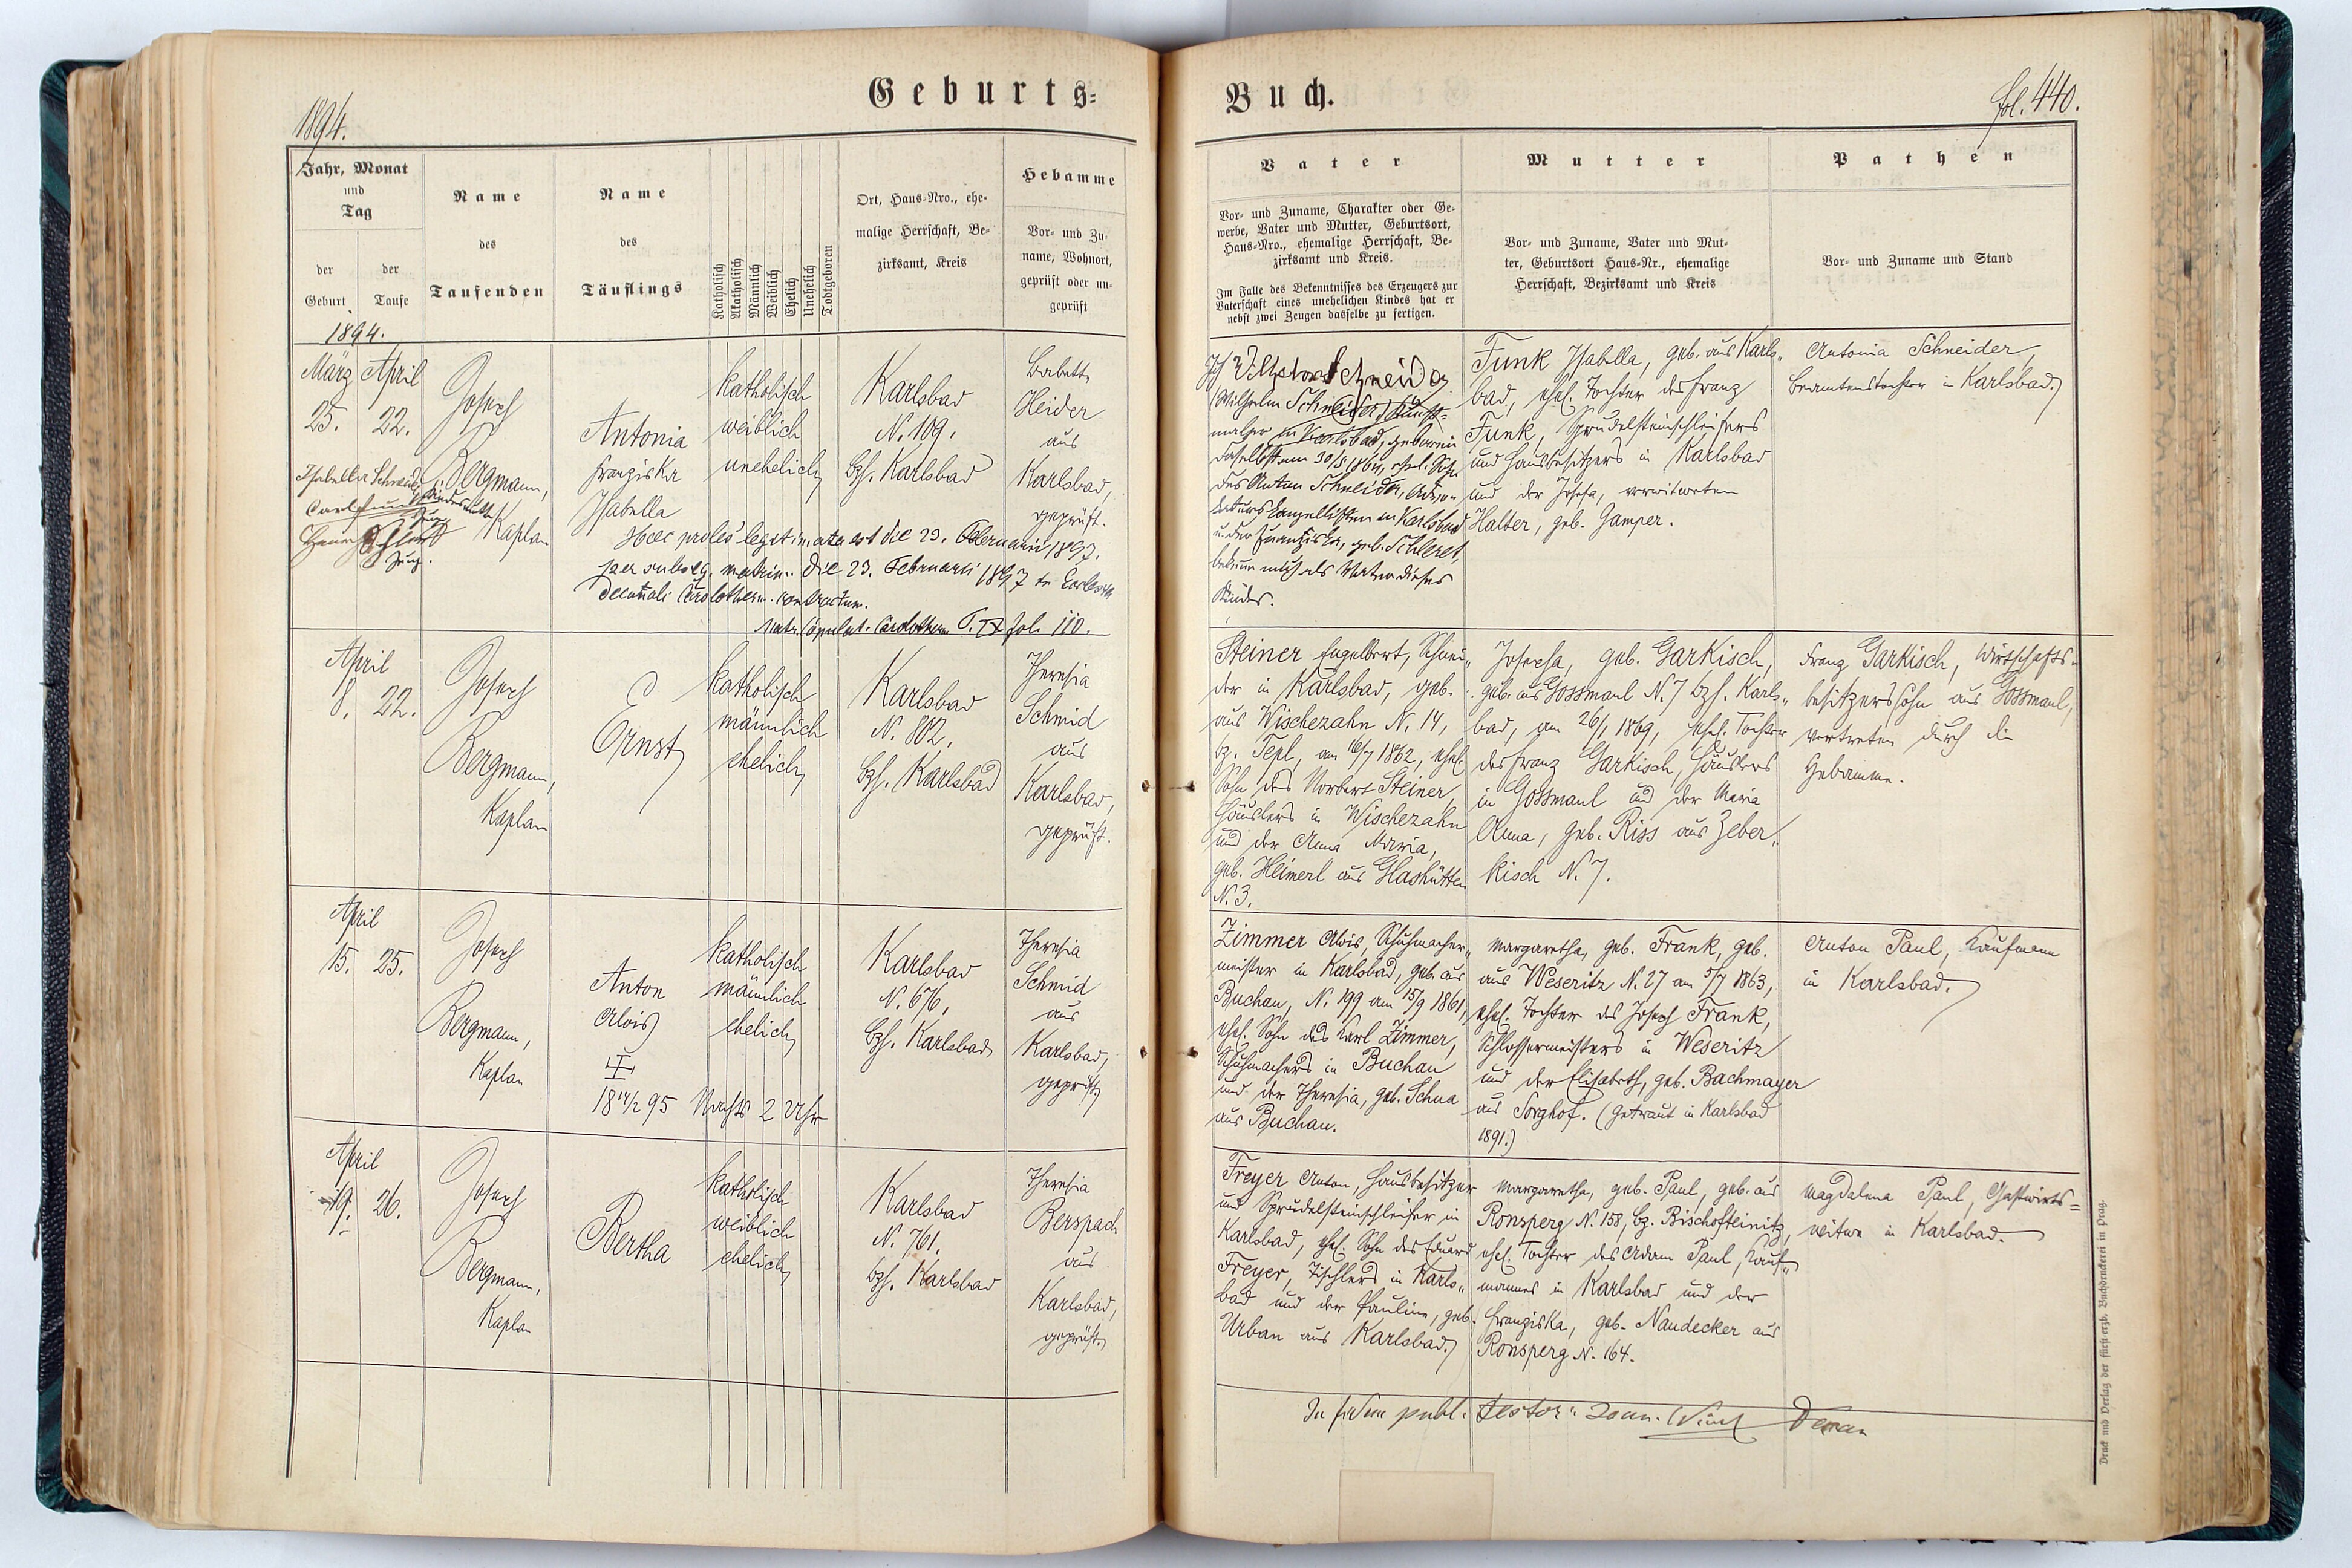 1894.
Geburts-
Buch.
fol. 440.
Jahr, Monat
und
Tag
der
Geburt
der
Taufe
Name
des
Taufenden
Name
des
Täuflings
Katholisch
Akatholisch
Männlich
Weiblich
Ehelich
Unehelich
Todtgeboren
Ort, Haus-Nro., ehe-
malige Herrschaft, Be-
zirksamt, Kreis
Hebamme
Vor- und Zu-
name, Wohnort,
geprüft oder un-
geprüft
Vater
Vor- und Zuname, Charakter oder Ge-
werbe, Vater und Mutter, Geburtsort,
Haus-Nro., ehemalige Herrschaft, Be-
zirksamt und Kreis.
Im Falle des Bekenntnisses des Erzeugers zur
Vaterschaft eines unehelichen Kindes hat er
nebst zwei Zeugen dasselbe zu fertigen.
Mutter
Vor- und Zuname, Vater und Mut-
ter, Geburtsort Haus-Nr., ehemalige
Herrschaft, Bezirksamt und Kreis
Pathen
Vor- und Zuname und Stand
1894.
März April
25. 22.
Isabella Schneider
Carl Funk
Zeuge
Zeug.
Josef
Bergmann,
Kaplan
Antonia
Franziska
Isabella
katholisch
weiblich
unehelich
Karlsbad
N. 109.
bzh. Karlsbad
Babette
Heider
aus
Karlsbad,
geprüft.
Haec proles legitimata est die 23. Februarii 1897.
per subseq. matrim. die 23. Februarii 1897 in
decanali Carolotherm. contractum.
Matr. Copulat. Carolotherm. fol. 110.
Ich Wilhelm Schneider
(Wilhelm Schneider) Kunst-
maler in Karlsbad, geboren
daselbst am 30/5 1864, ehel. Sohn
des Anton Schneider,
Kanzellisten in Karlsbad
u. der Franziska, geb. Schleret,
bekenne mich als Vater dieses
Kindes.
Funk Isabella, geb. aus Karls-
bad, ehel. Tochter des Franz
Funk, Sprudelsteinschleifers
und Hausbesitzers in Karlsbad
und der Josefa, verwitweten
Halter, geb. Gamper.
Antonia Schneider,
Beamtenstochter in Karlsbad.
April
8. 22.
Josef
Bergmann,
Kaplan
Ernst
katholisch
männlich
ehelich
Karlsbad
N. 802.
bzh. Karlsbad
Theresia
Schmid
aus
Karlsbad,
geprüft.
Steiner Engelbert, Schnei-
der in Karlsbad, geb.
aus Wischezahn N. 14,
bz. Tepl, am 16/7 1862, ehel.
Sohn des Norbert Steiner,
Häuslers in Wischezahn
und der Anna Maria,
geb. Heimerl aus Glashütten
N. 3.
Josefa, geb. Garkisch,
geb. aus Gossmaul N. 7 bzh. Karls-
bad, am 26/1 1869, ehel. Tochter
des Franz Garkisch, Häuslers
in Gossmaul und der Maria
Anna, geb. Riss aus Zeber-
kisch N. 7.
Franz Garkisch, Wirtschafts-
besitzerssohn aus Gossmaul,
vertreten durch die
Hebamme.
April
15. 25.
Josef
Bergmann,
Kaplan
Anton
Alois
18 14/2 95 Nachts 2 Uhr
katholisch
männlich
ehelich
Karlsbad
N. 676,
bzh. Karlsbad
Theresia
Schmid
aus
Karlsbad,
geprüft.
Zimmer Alois, Schuhmacher-
meister in Karlsbad, geb. aus
Buchau, N. 199 am 15/9 1861,
ehel. Sohn des Karl Zimmer,
Schuhmachers in Buchau
und der Theresia, geb. Schua
aus Buchau.
Margaretha, geb. Frank, geb.
aus Weseritz N. 27 am 5/7 1863,
ehel. Tochter des Josef Frank,
Schlossermeisters in Weseritz
und der Elisabeth, geb. Bachmayer
aus Sorghof. (Getraut in Karlsbad
1891.)
Anton Paul, Kaufmann
in Karlsbad.
April
19. 26.
Josef
Bergmann,
Kaplan
Bertha
katholisch
weiblich
ehelich
Karlsbad
N. 761.
bzh. Karlsbad
Theresia
Berspach
aus
Karlsbad,
geprüft.
Freyer Anton, Hausbesitzer
und Sprudelsteinschleifer in
Karlsbad, ehel. Sohn des Eduard
Freyer, Tischlers in Karls-
bad und der Pauline, geb.
Urban aus Karlsbad.
Margaretha, geb. Paul, geb. aus
Ronsperg N. 158, bz. Bischofteinitz,
ehel. Tochter des Adam Paul, Kauf-
mannes in Karlsbad und der
Franziska, geb. Naudecker aus
Ronsperg N. 164.
Magdalena Paul, Gastwirts-
witwe in Karlsbad.
In fidem publ. testor: Dechan
Druck und Verlag der fürst-erzb. Buchdruckerei in Prag.